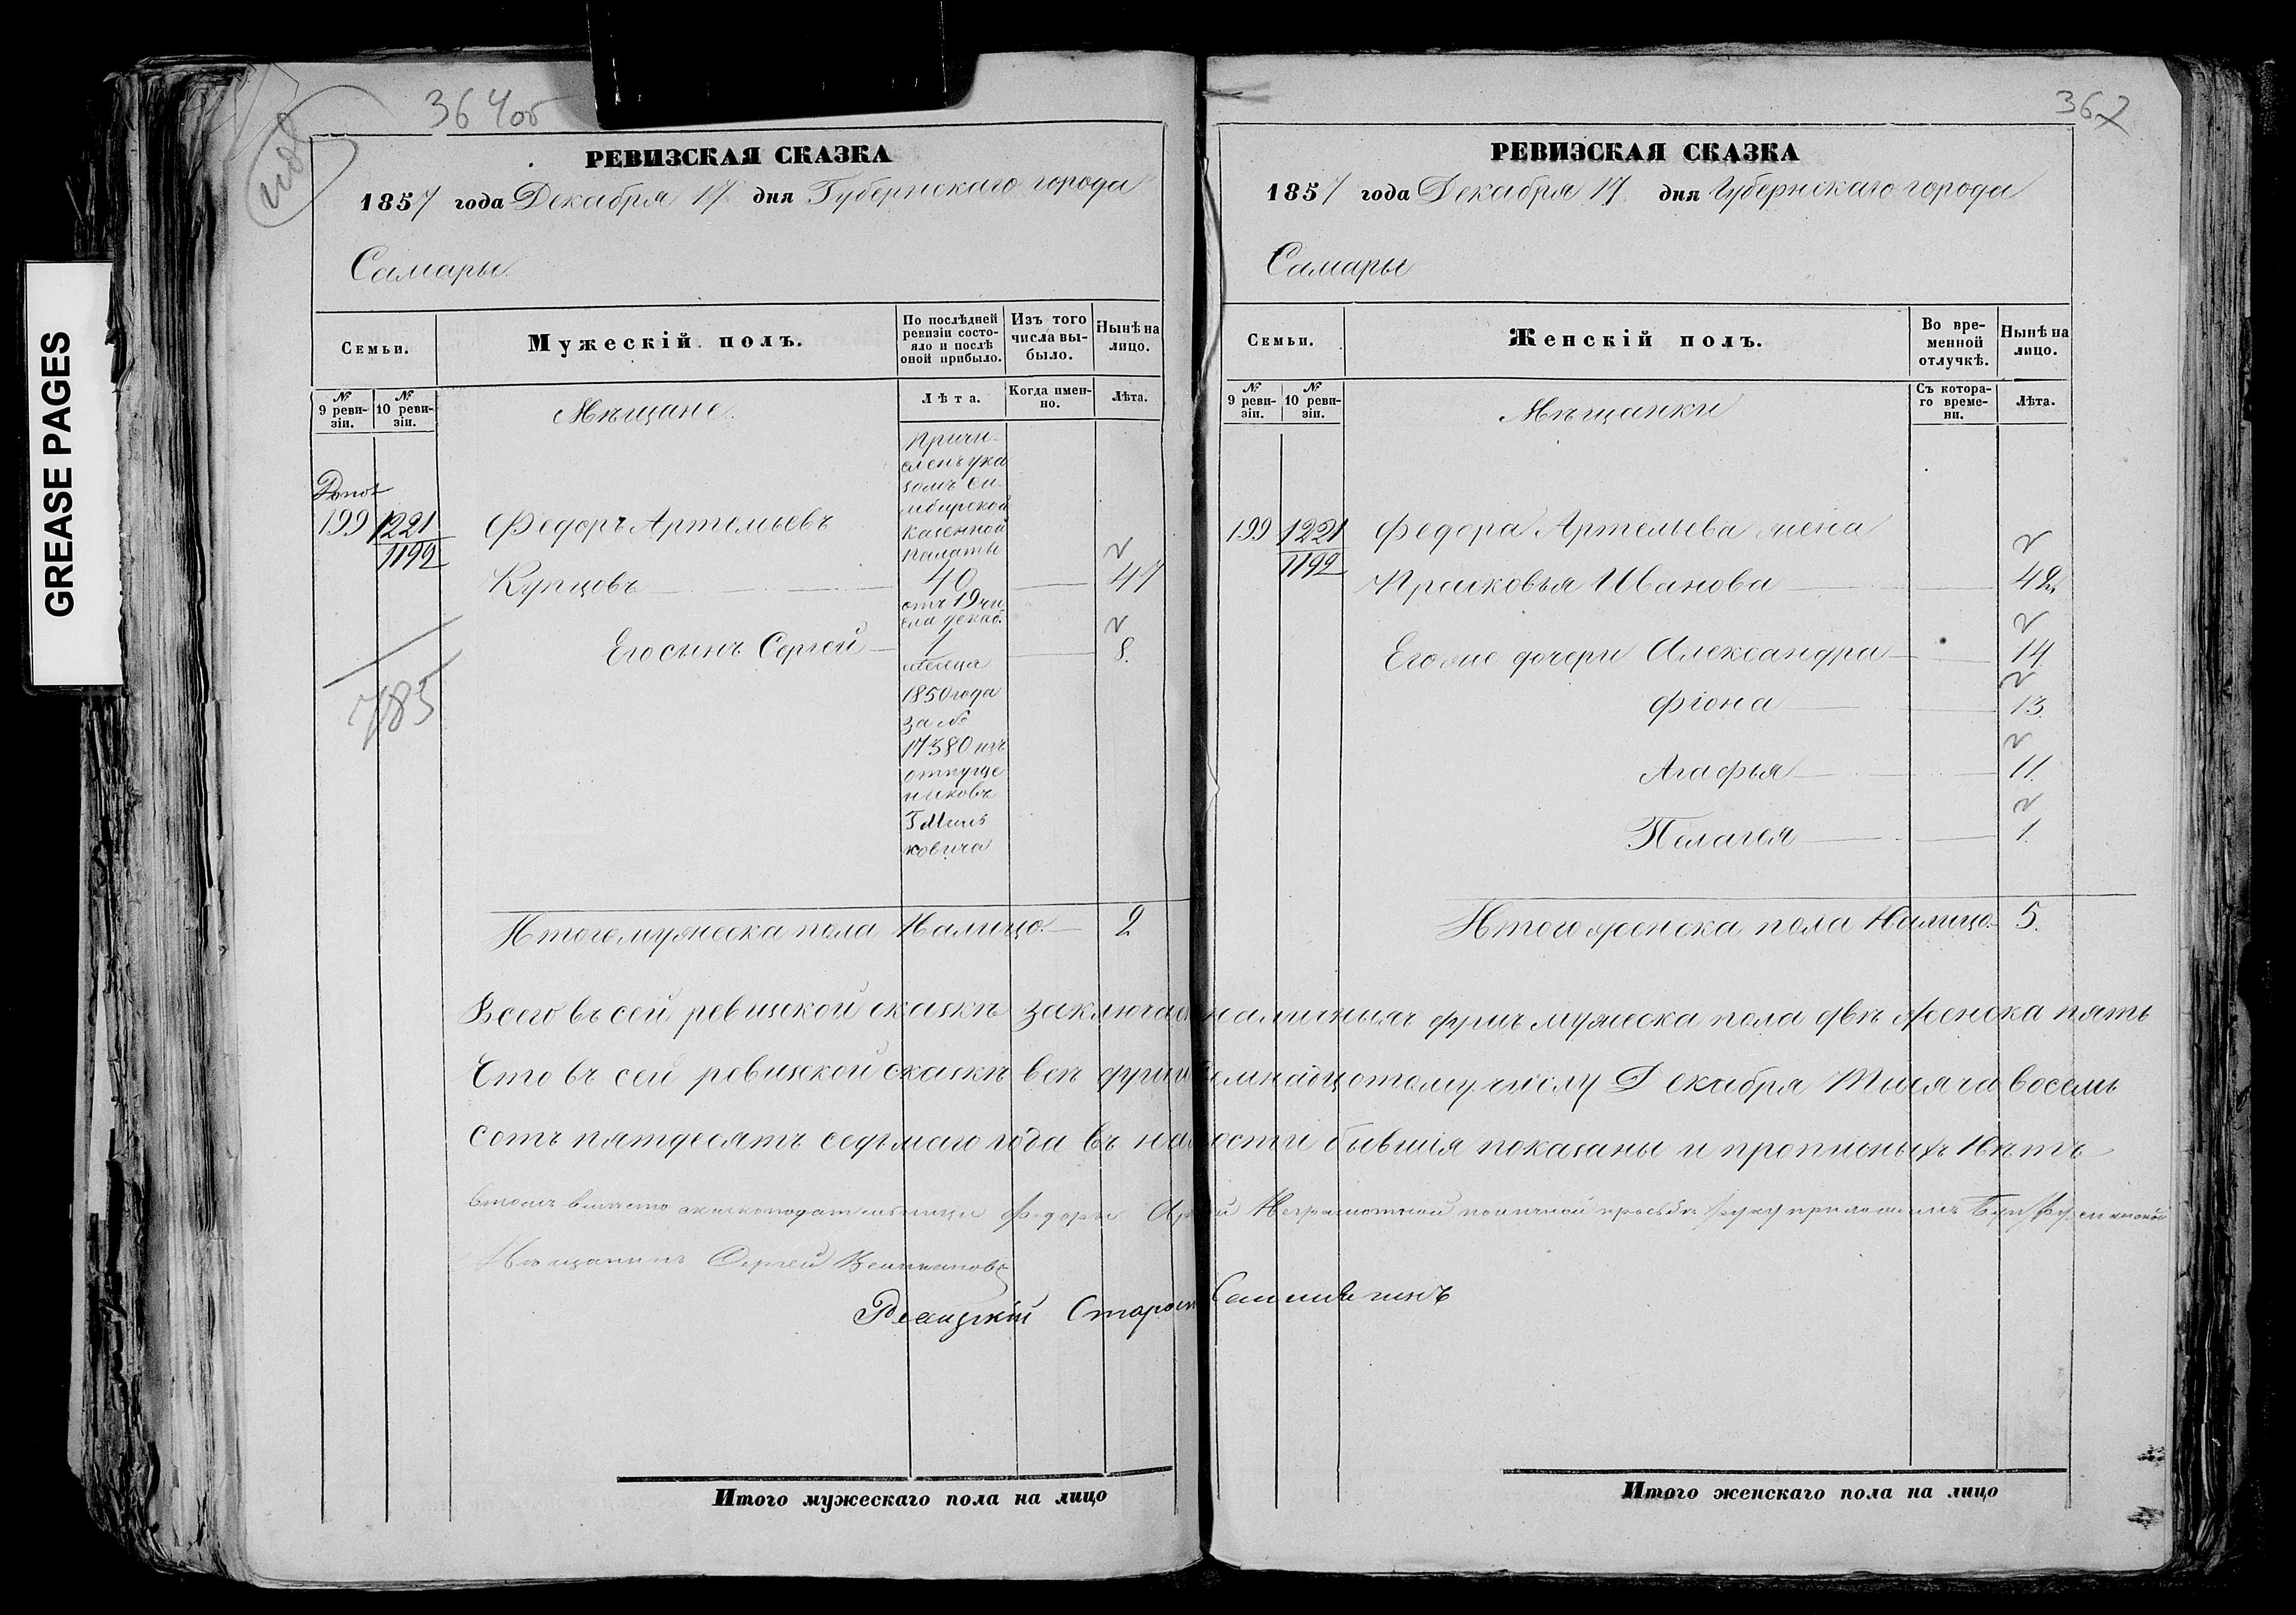 GREASE PAGES
364об
РЕВИЗСКАЯ СКАЗКА
1857 года Декабря 17 дня Губернскаго города
Самары
Семьи.
Мужескій полъ.
По послѣдней ревизіи состояло и послѣ оной прибыло.
Изъ того числа выбыло.
Нынѣ на лицо.
№ 9 ревизіи.
№ 10 ревизіи.
Мѣщане.
Лѣта.
Когда именно.
Лѣта.
причи-
сленъ ука
зомъ Си-
мбирской
Казенной
палаты
199 1221
1192
Федоръ Артемьевъ
Купцовъ 40 47
отъ 19 чи
сла декаб.
Его сынъ Сергей 1 8.
месяца
1850 года
за №
17380 изъ
отпуще
никовъ
785
Итого мужеска пола Налицо 2
РЕВИЗСКАЯ СКАЗКА
367
1857 года Декабря 17 дня Губернскаго города
Самары
Семьи.
Женскій полъ.
Во временной отлучкѣ.
Нынѣ на лицо.
№ 9 ревизіи.
№ 10 ревизіи.
Мѣщанки
Съ котораго времени.
Лѣта.
199 1221 Федора Артемьева жена
1192 Прасковья Иванова 42
Его же дочери Александра 14
Фіона 13
Агафья 11.
Пелагея 1.
Итого женска пола Налицо 5.
Всего въ сей ревизской сказкѣ заключае наличныхъ душъ мужеска пола двѣ женска пять
Что въ сей ревизской сказкѣ всѣ души семнадцотому числу Декабря Тысяча восемь
сотъ пятдесятъ седьмаго года въ на ости бывшія показаны и прописныхъ Нѣтъ
Втомъ вместо Федоры неграмотной поличной прозьбѣ руку приложилъ
Мещанинъ Сергей
Староста
Итого мужескаго пола на лицо
Итого женскаго пола на лицо